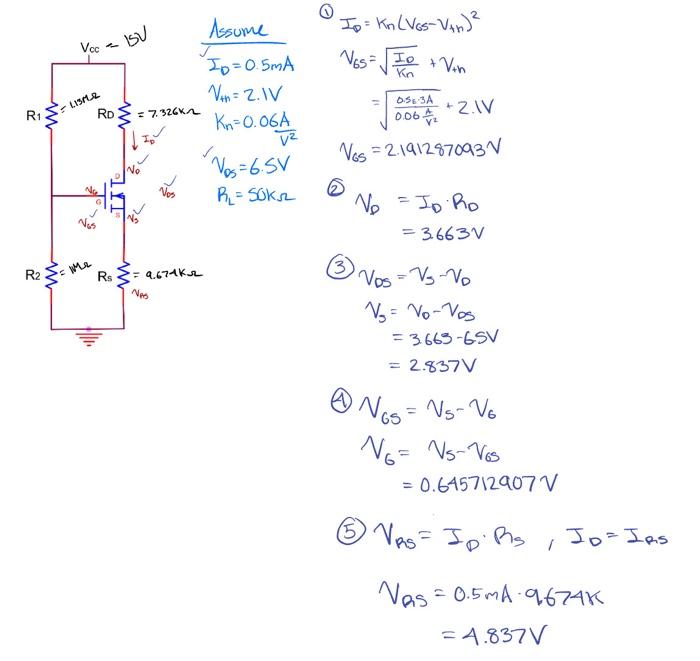 Vcc = 15V
R1
= 1.15MΩ
RD
= 7.326KΩ
ID ✓
VD ✓
D
VG
G
VDS ✓
S
VS ✓
VGS ✓
R2
= 1MΩ
RS
= 9.674KΩ
VRS
Assume
✓ ID = 0.5mA
Vth = 2.1V
Kn = 0.06 A/V²
✓ VDS = 6.5V
RL = 50KΩ
① ID = Kn(VGS-Vth)²
VGS = √(ID/Kn) + Vth
= √(0.5E-3A / 0.06 A/V²) + 2.1V
VGS = 2.191287093V
② VD = ID · RD
= 3.663V
③ VDS = VS - VD
VS = VD - VDS
= 3.663 - 6.5V
= 2.837V
④ VGS = VS - VG
VG = VS - VGS
= 0.645712907V
⑤ VRS = ID · RS , ID = IRS
VRS = 0.5mA · 9.674K
= 4.837V